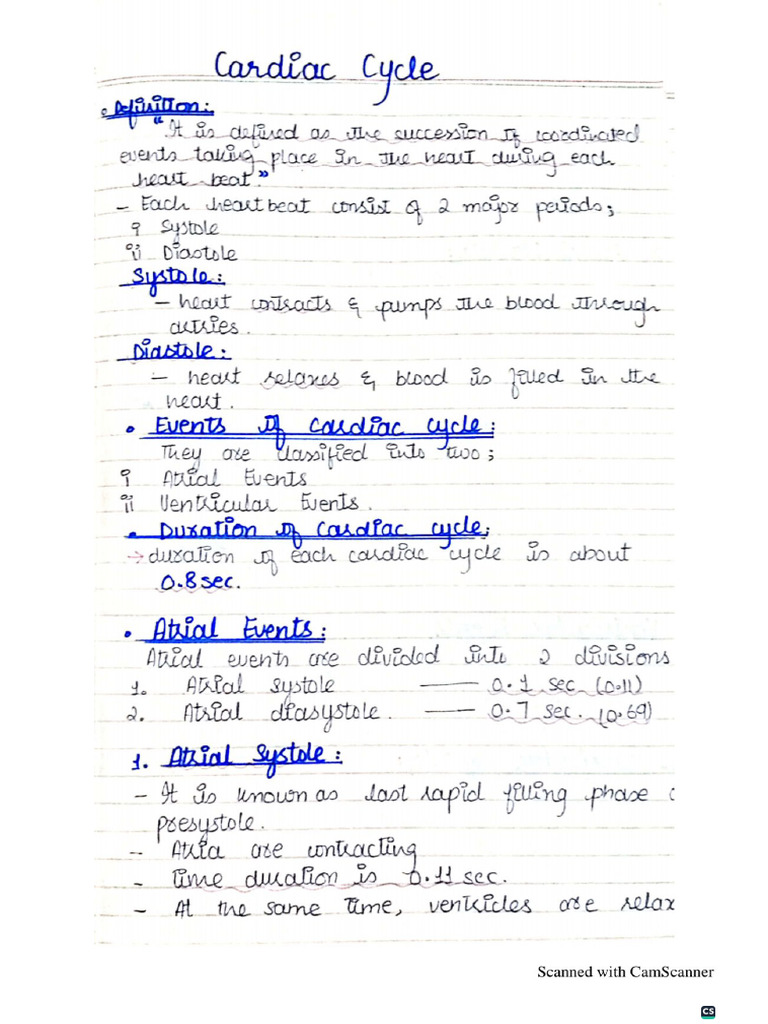 Cardiac Cycle
• Definition:
"It is defined as the succession of coordinated
events taking place in the heart during each
heart beat."
- Each heartbeat consist of 2 major periods;
i Systole
ii Diastole
Systole:
- heart contracts & pumps the blood through
artries.
Diastole:
- heart relaxes & blood is filled in the
heart.
• Events of Cardiac cycle:
They are classified into two;
i Atrial Events
ii Ventricular Events.
• Duration of Cardiac cycle;
→ duration of each cardiac cycle is about
0.8 sec.
• Atrial Events:
Atrial events are divided into 2 divisions
1. Atrial systole —— 0.1 sec (0.11)
2. Atrial diasystole. —— 0.7 sec. (0.69)
1. Atrial Systole:
- It is known as last rapid filling phase
presystole.
- Atria are contracting
- Time duration is 0.11 sec.
- At the same time, ventricles are relax
Scanned with CamScanner
CS